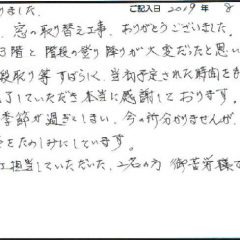 りました。 ご記入日 2019年 8
窓の取り替え工事、ありがとうございました。
3階と階段の登り降りが大変だったと思い
段取り等すばらしく、当初予定された時間を
了していただき本当に感謝しております。
季節が過ぎてしまい、今の所分かりませんが、
をたのしみにしています。
担当していただいた、2名の方 御苦労様で